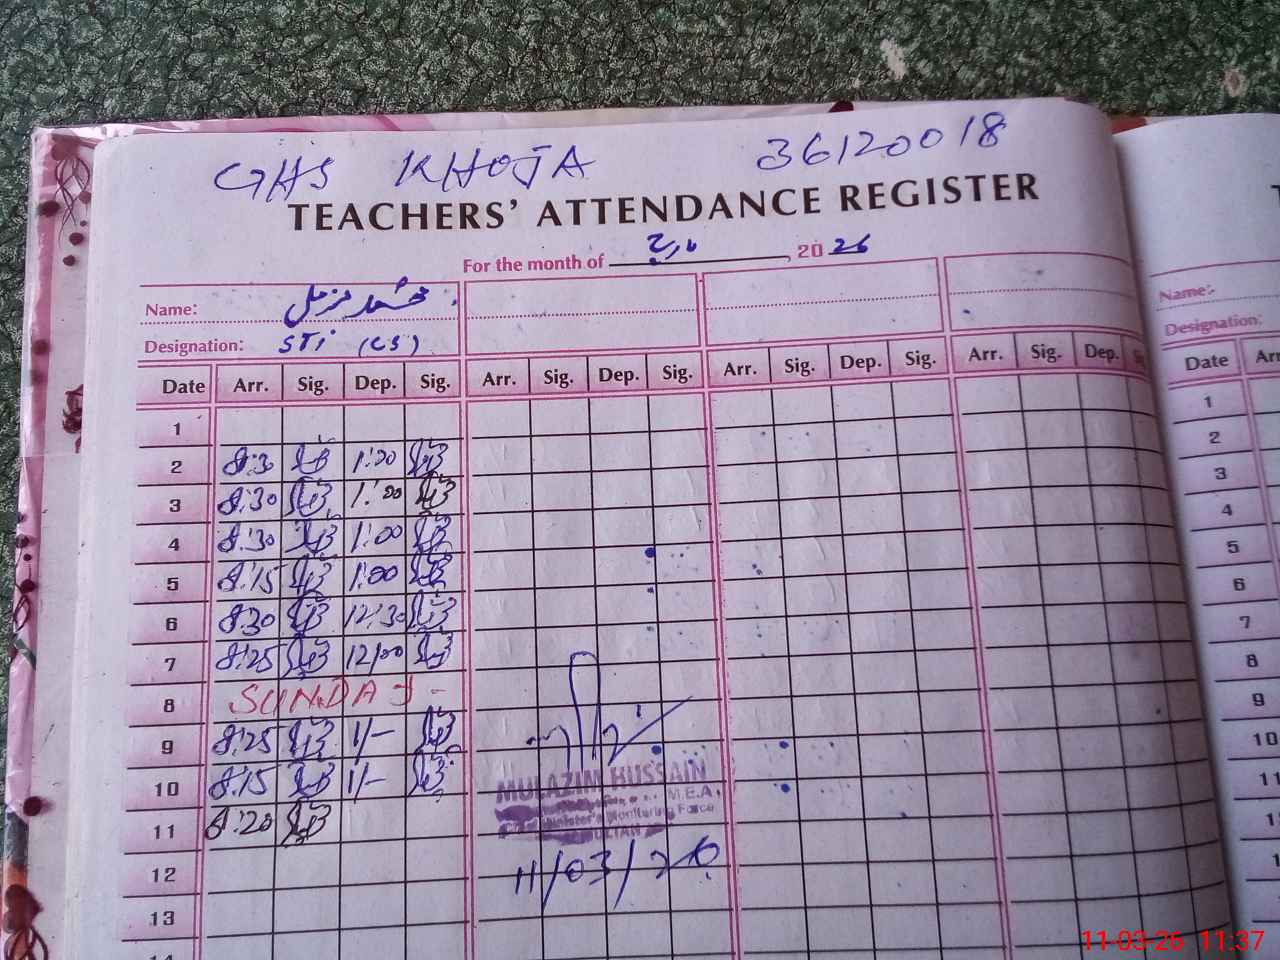 GHS KHOJA 36120018
TEACHERS' ATTENDANCE REGISTER
For the month of مارچ, 2026
Name: محمد مزمل
Designation: STI (CS)
Date Arr. Sig. Dep. Sig. Arr. Sig. Dep. Sig. Arr. Sig. Dep. Sig. Arr. Sig. Dep. Sig.
1
2 8:30 1:00
3 8:30 1:00
4 8:30 1:00
5 8:15 1:00
6 8:30 12:30
7 8:25 12:00
8 SUNDAY -
9 8:25 1/-
10 8:15 1/-
11 8:20
MULAZIM HUSSAIN
M.E.A.
Minister's Monitoring Force
MULTAN
11/03/26
12
13
14
Name:-
Designation:
Date Arr.
1
2
3
4
5
6
7
8
9
10
11
11-03-26 11:37